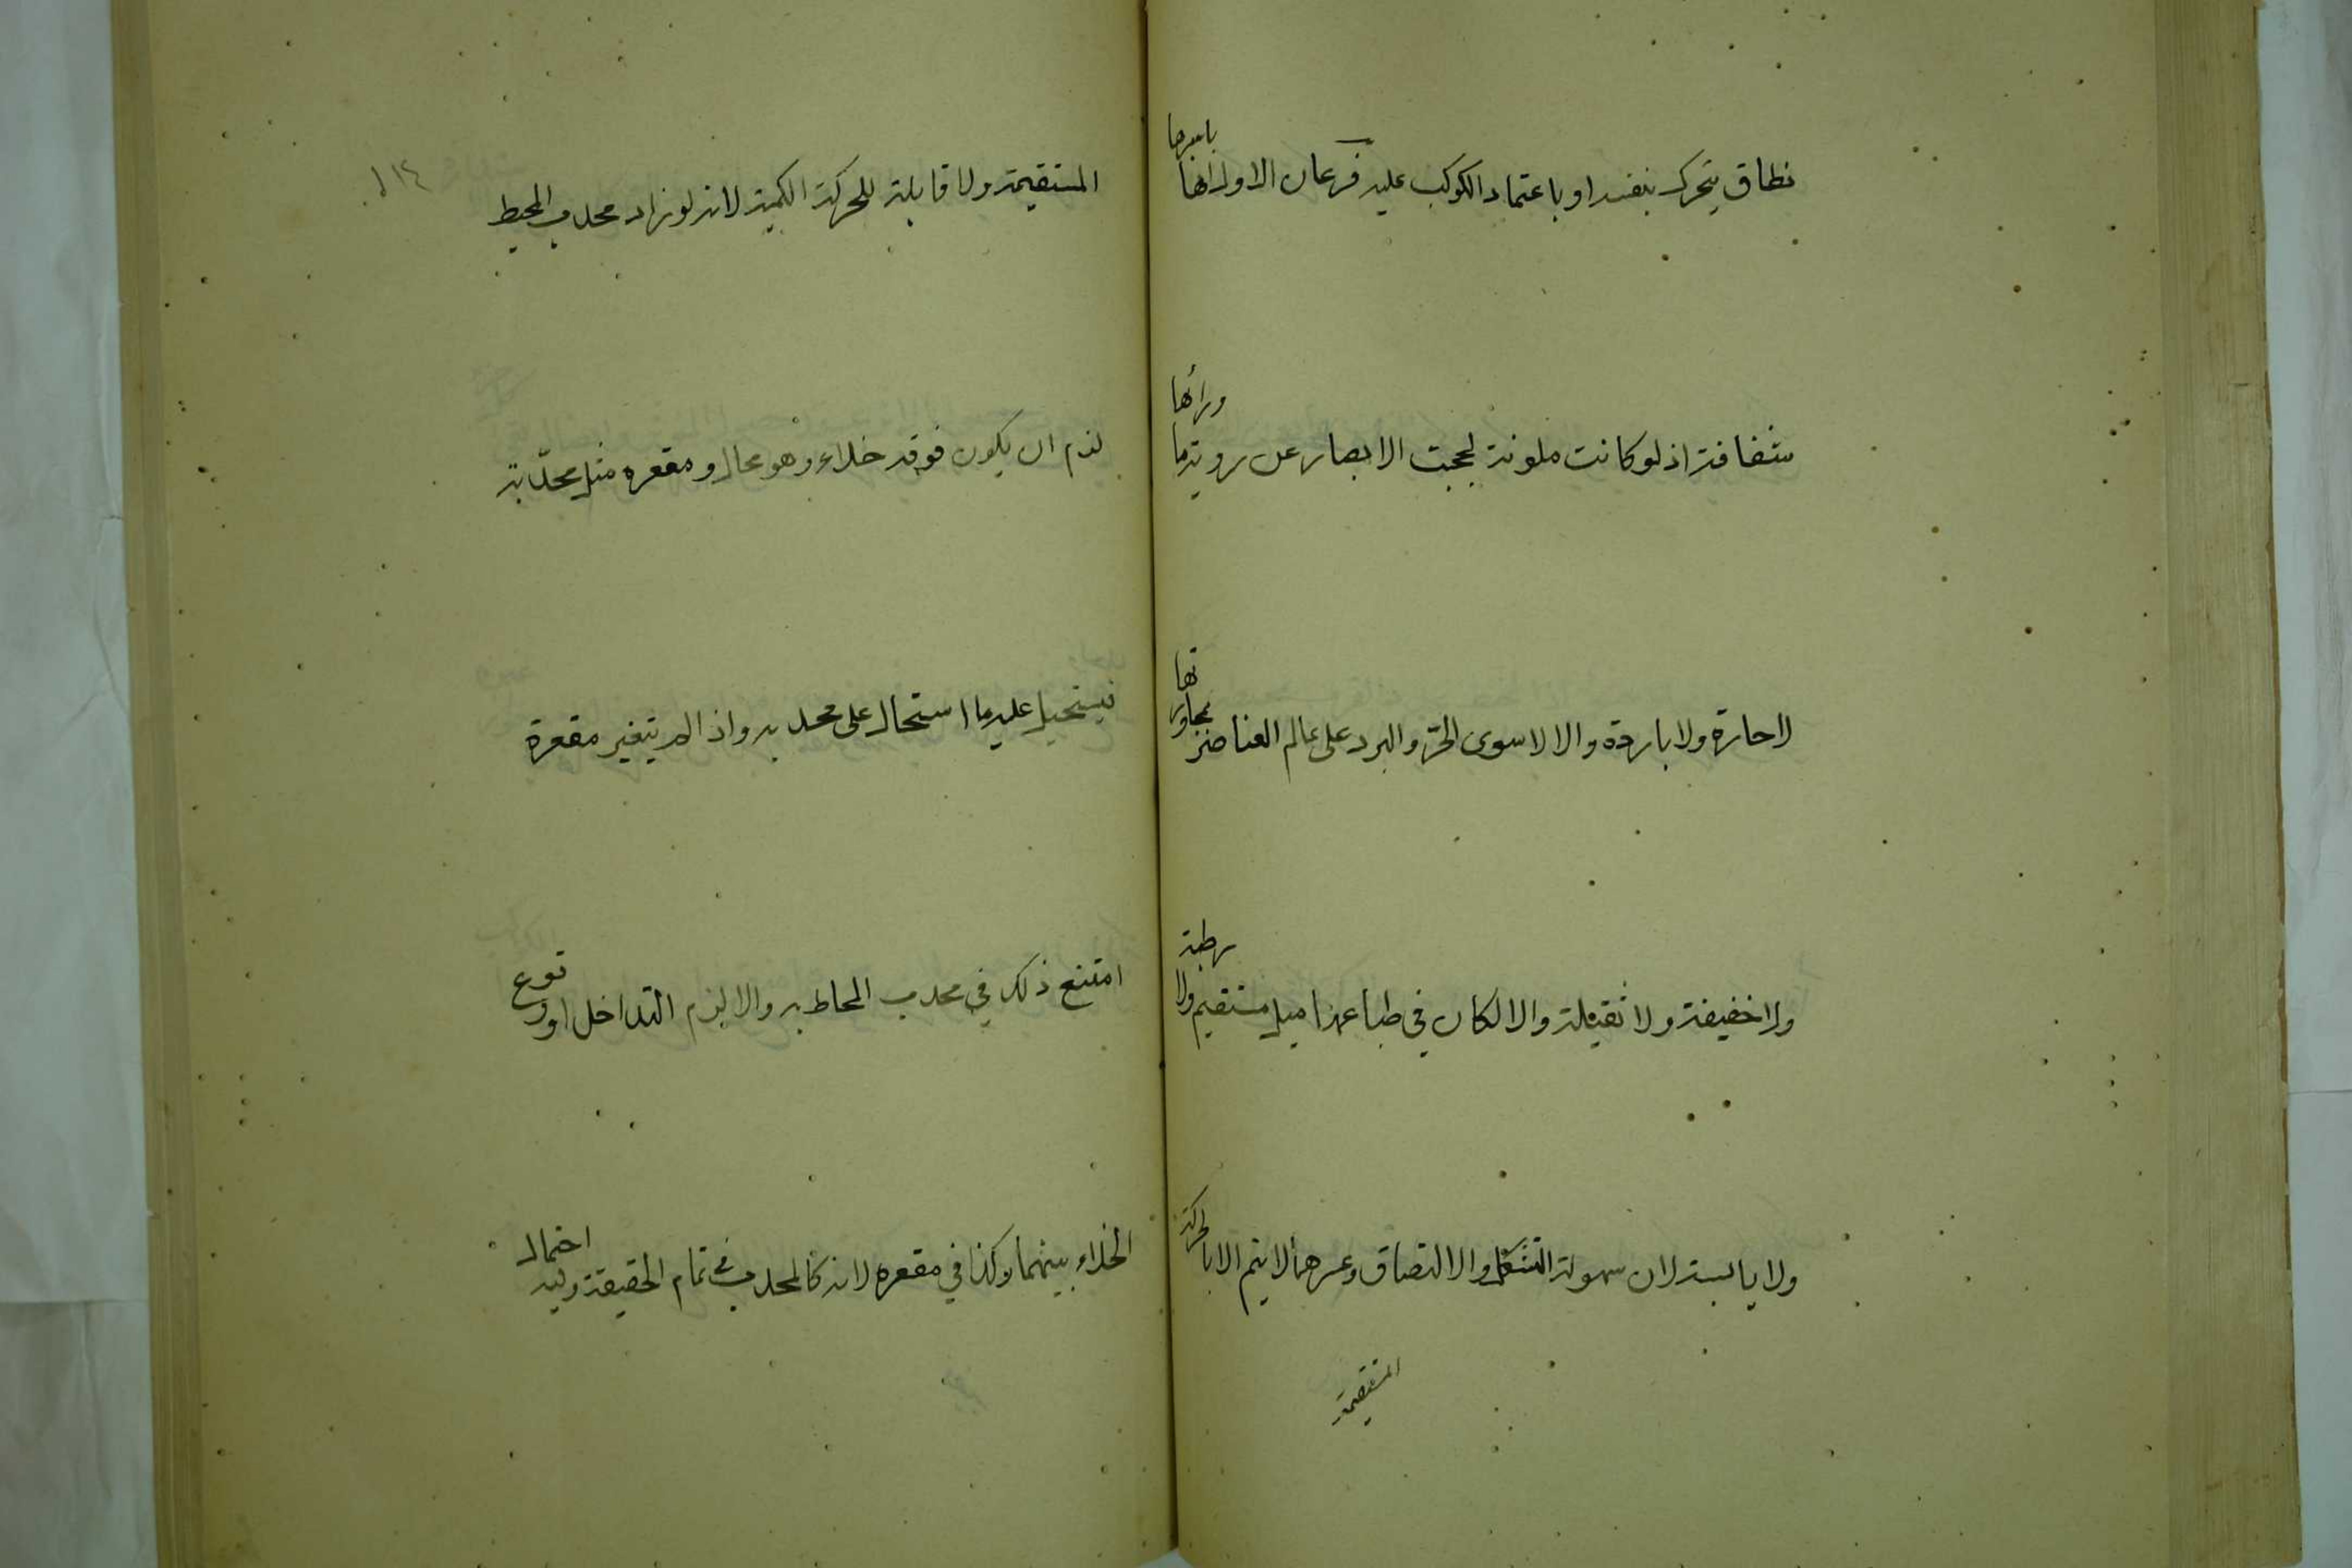 نطاق يتحرك بنفسه او باعتماد الكوكب عليه فرعان الاول انها باسرها
شفافة اذ لو كانت ملونة لحجبت الابصار عن روية ما ورائها
لا حارة ولا باردة والا لاسوى الحرّ والبرد على عالم العناصر بمجاورتها
ولا خفيفة ولا ثقيلة والا لكان في طباعها ميل مستقيم ولا رطبة
ولا يابسة لان سهولة التشكل والالتصاق وعسرهما لا يتم الا بالحركة
المستقيمة
١١٤
المستقيمة ولا قابلة للحركة الكمية لانه لو زاد محدب المحيط
لزم ان يكون فوقه خلاء وهو محال و مقعره مثل محدّبة
فيستحيل عليه ما استحال على محدبه واذا لم يتغير مقعرة
امتنع ذلك في محدب المحاط به والا لزم التداخل او وقوع
الخلاء بينهما وكذا في مقعره لانه كالمحدب في تمام الحقيقة وفيه احتمال